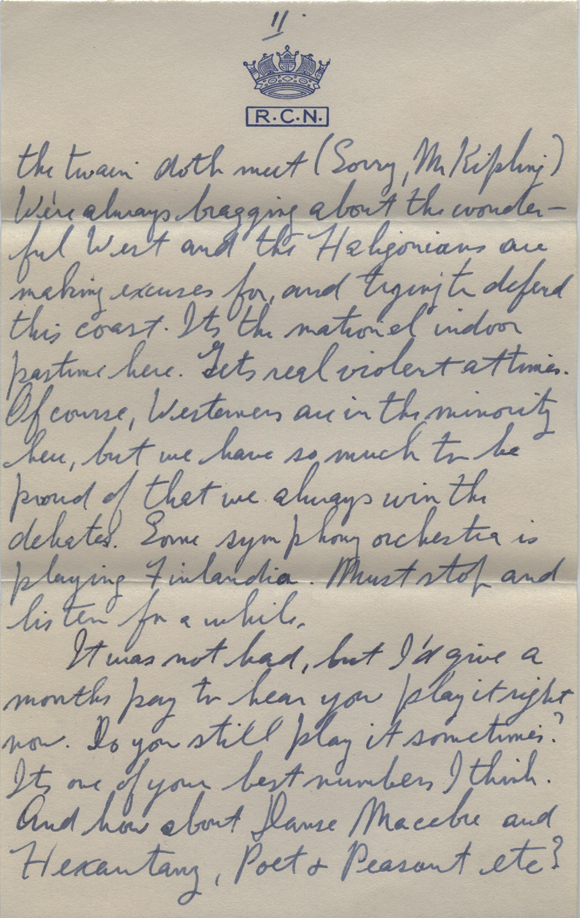 11.
R.C.N.
the twain doth meet (Sorry, Mr Kipling)
We're always bragging about the wonder-
ful West and the Haligonians are
making excuses for, and trying to defend
this coast. Its the national indoor
pastime here. Gets real violent at times.
Of course, Westerners are in the minority
here, but we have so much to be
proud of that we always win the
debates. Some symphony orchestra is
playing Finlandia. Must stop and
listen for a while.
It was not bad, but I'd give a
months pay to hear you play it right
now. Do you still play it sometimes?
Its one of your best numbers I think.
And how about Danse Macabre and
Hexantanz, Poet & Peasant etc?